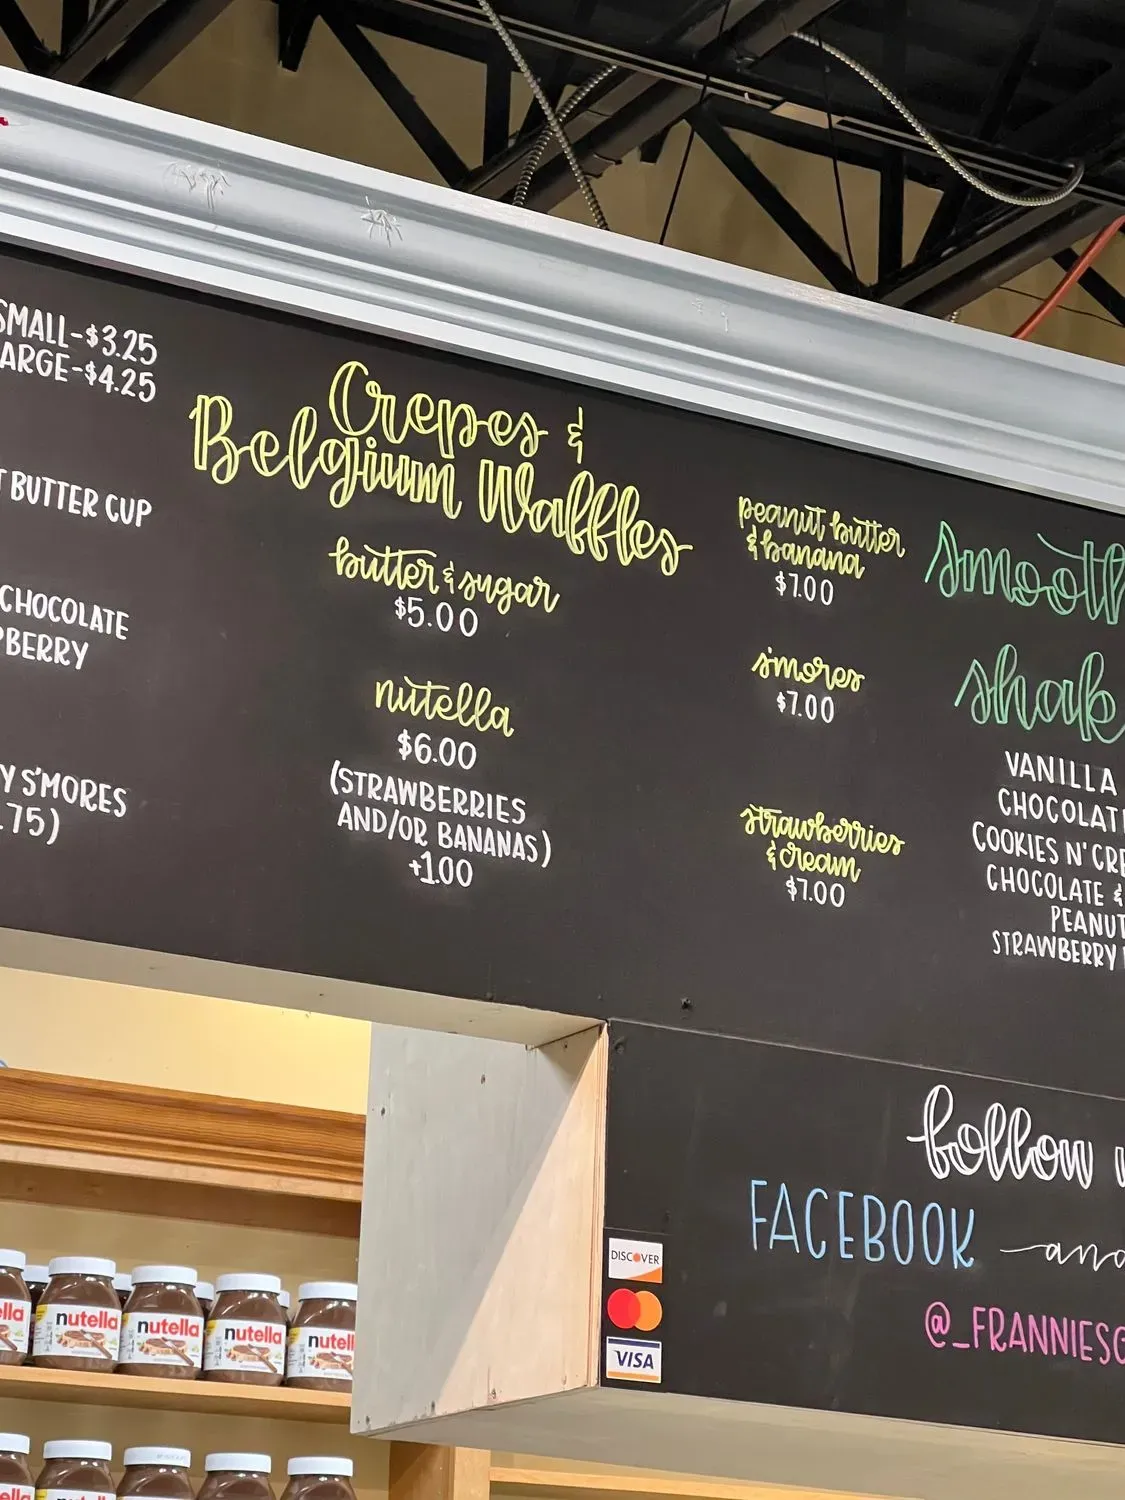 SMALL-$3.25
LARGE-$4.25
BUTTER CUP
CHOCOLATE
S'MORES
.75)
Crepes &
Belgium Waffles
butter & sugar
$5.00
nutella
$6.00
(STRAWBERRIES
AND/OR BANANAS)
+1.00
peanut butter
& banana
$7.00
s'mores
$7.00
strawberries
& cream
$7.00
VANILLA
COOKIES N'
CHOCOLATE &
STRAWBERRY
follow
FACEBOOK and
@_FRANNIES
DISCOVER
VISA
nutella
nutella
nutella